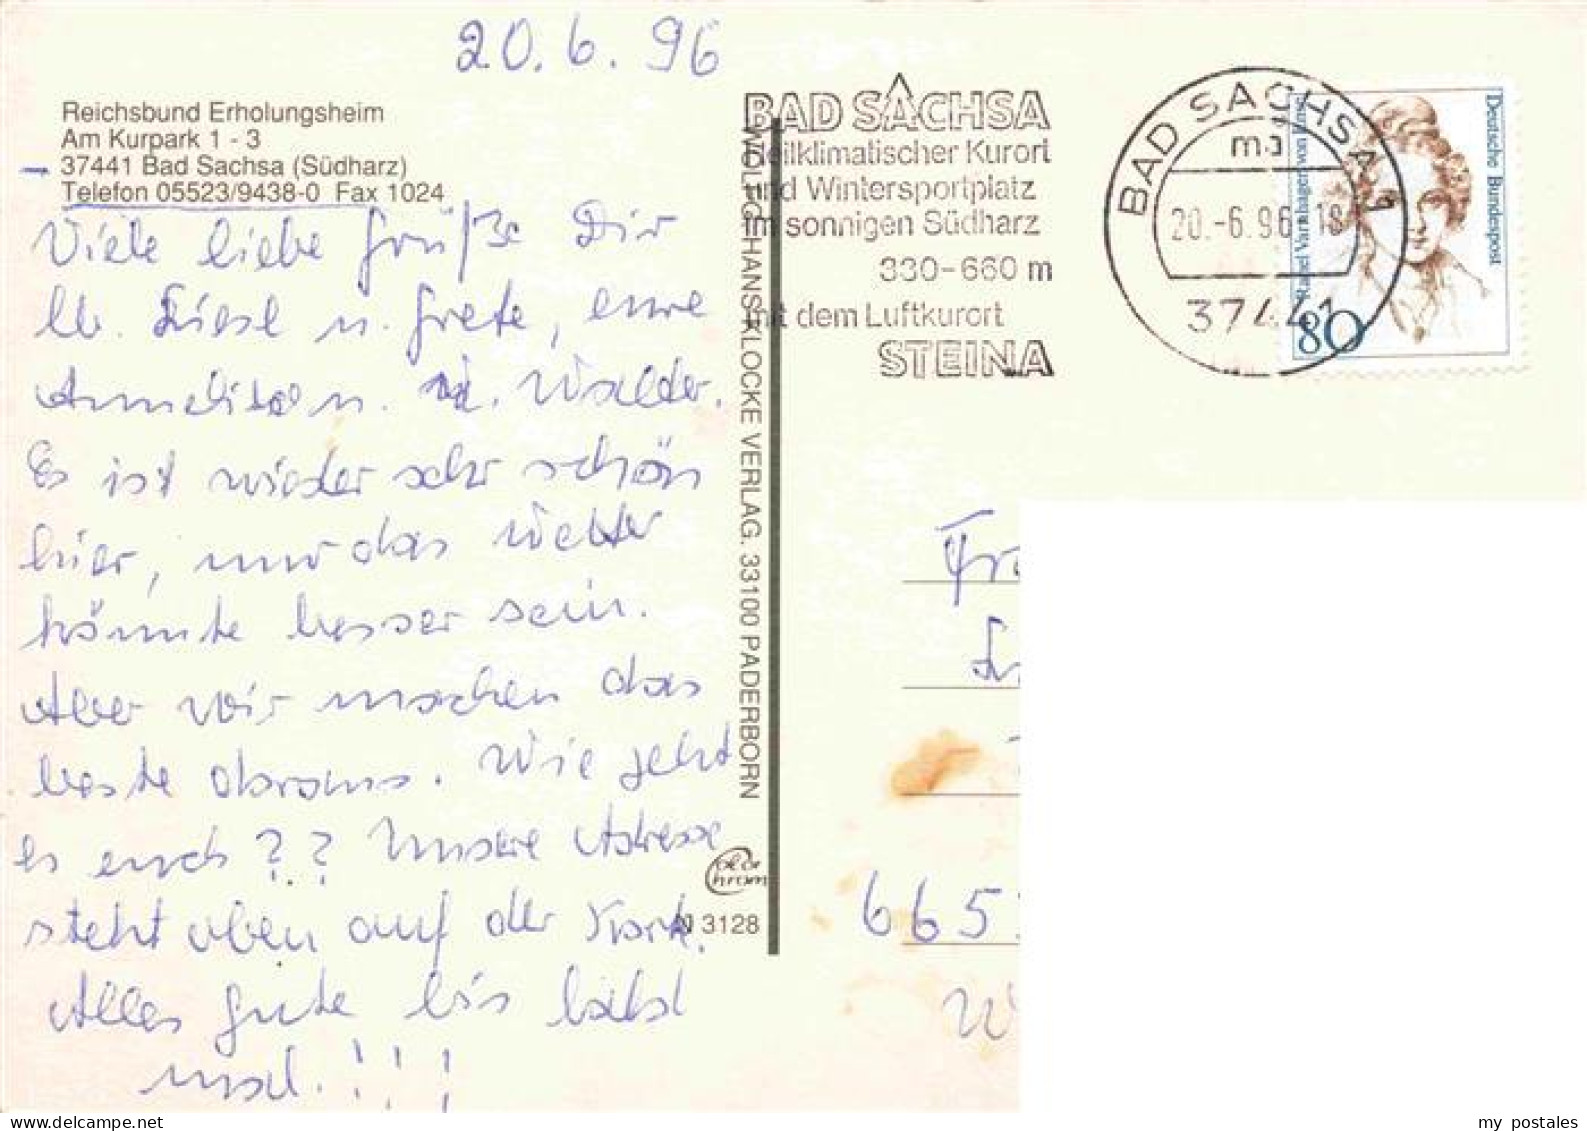 20.6.96
Reichsbund Erholungsheim
Am Kurpark 1 - 3
37441 Bad Sachsa (Südharz)
Telefon 05523/9438-0 Fax 1024
Viele liebe Grüße Dir
lb. Liesl u. Grete, eure
u. Walder.
Es ist wieder sehr schön
hier, nur das Wetter
könnte besser sein.
Aber wir machen das
beste daraus. Wie geht
es euch ?? Unsere Adresse
steht oben auf der Kart.
Alles gute bis bald
mal.!!!
WOLFG. HANS KLOCKE VERLAG. 33100 PADERBORN
N 3128
BAD SACHSA
Heilklimatischer Kurort
und Wintersportplatz
im sonnigen Südharz
330-660 m
mit dem Luftkurort
STEINA
BAD SACHSA 1
ma
20.-6.96-18
37441
Deutsche Bundespost
Rahel Varnhagen von Ense
80
Fr
665
W
my postales